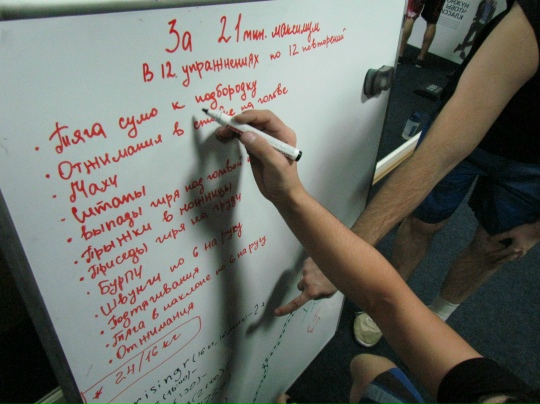 За 21 мин. максимум
В 12 упражнениях по 12 повторений
• Тяга сумо к подбородку
• Отжимания в стойке на голове
• Махи
• Ситапы
• Выпады гиря над головой
• Прыжки в ножницы
• Приседы гиря на груди
• Бурпи
• Швунги по 6 на руку
• Подтягивания
• Тяга в наклоне по 6 на руку
• Отжимания
* 24/16 кг